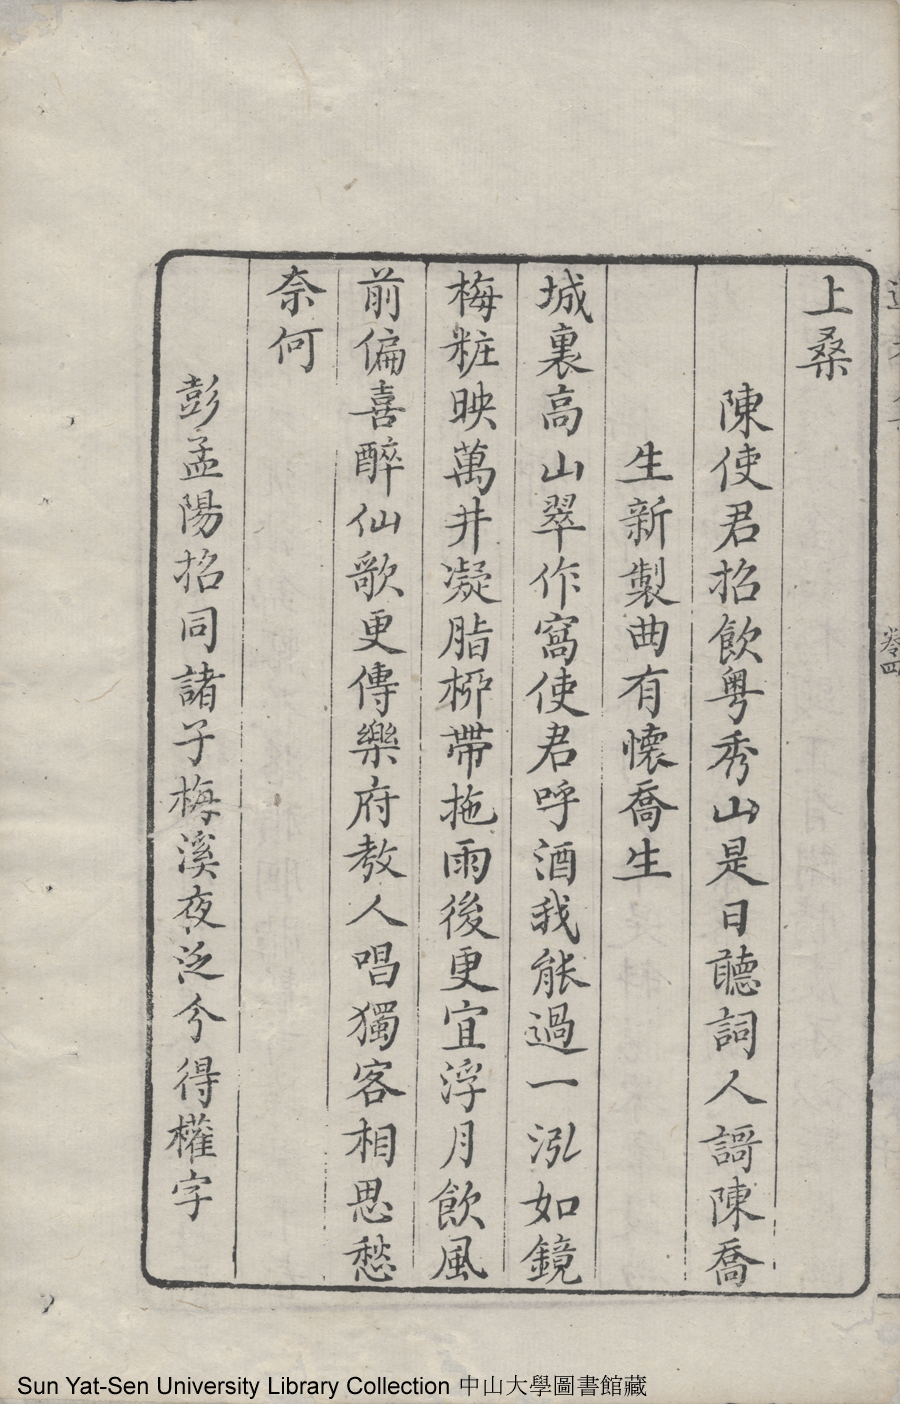 卷四
上桑
陳使君招飲粤秀山是日聽詞人謌陳喬
生新製曲有懷喬生
城裏高山翠作窩使君呼酒我能過一泓如鏡
梅粧映萬井凝脂桺帶拖雨後更宜浮月飲風
前偏喜醉仙歌更傳樂府教人唱獨客相思愁
奈何
彭孟陽招同諸子梅溪夜泛分得權字
Sun Yat-Sen University Library Collection 中山大學圖書館藏